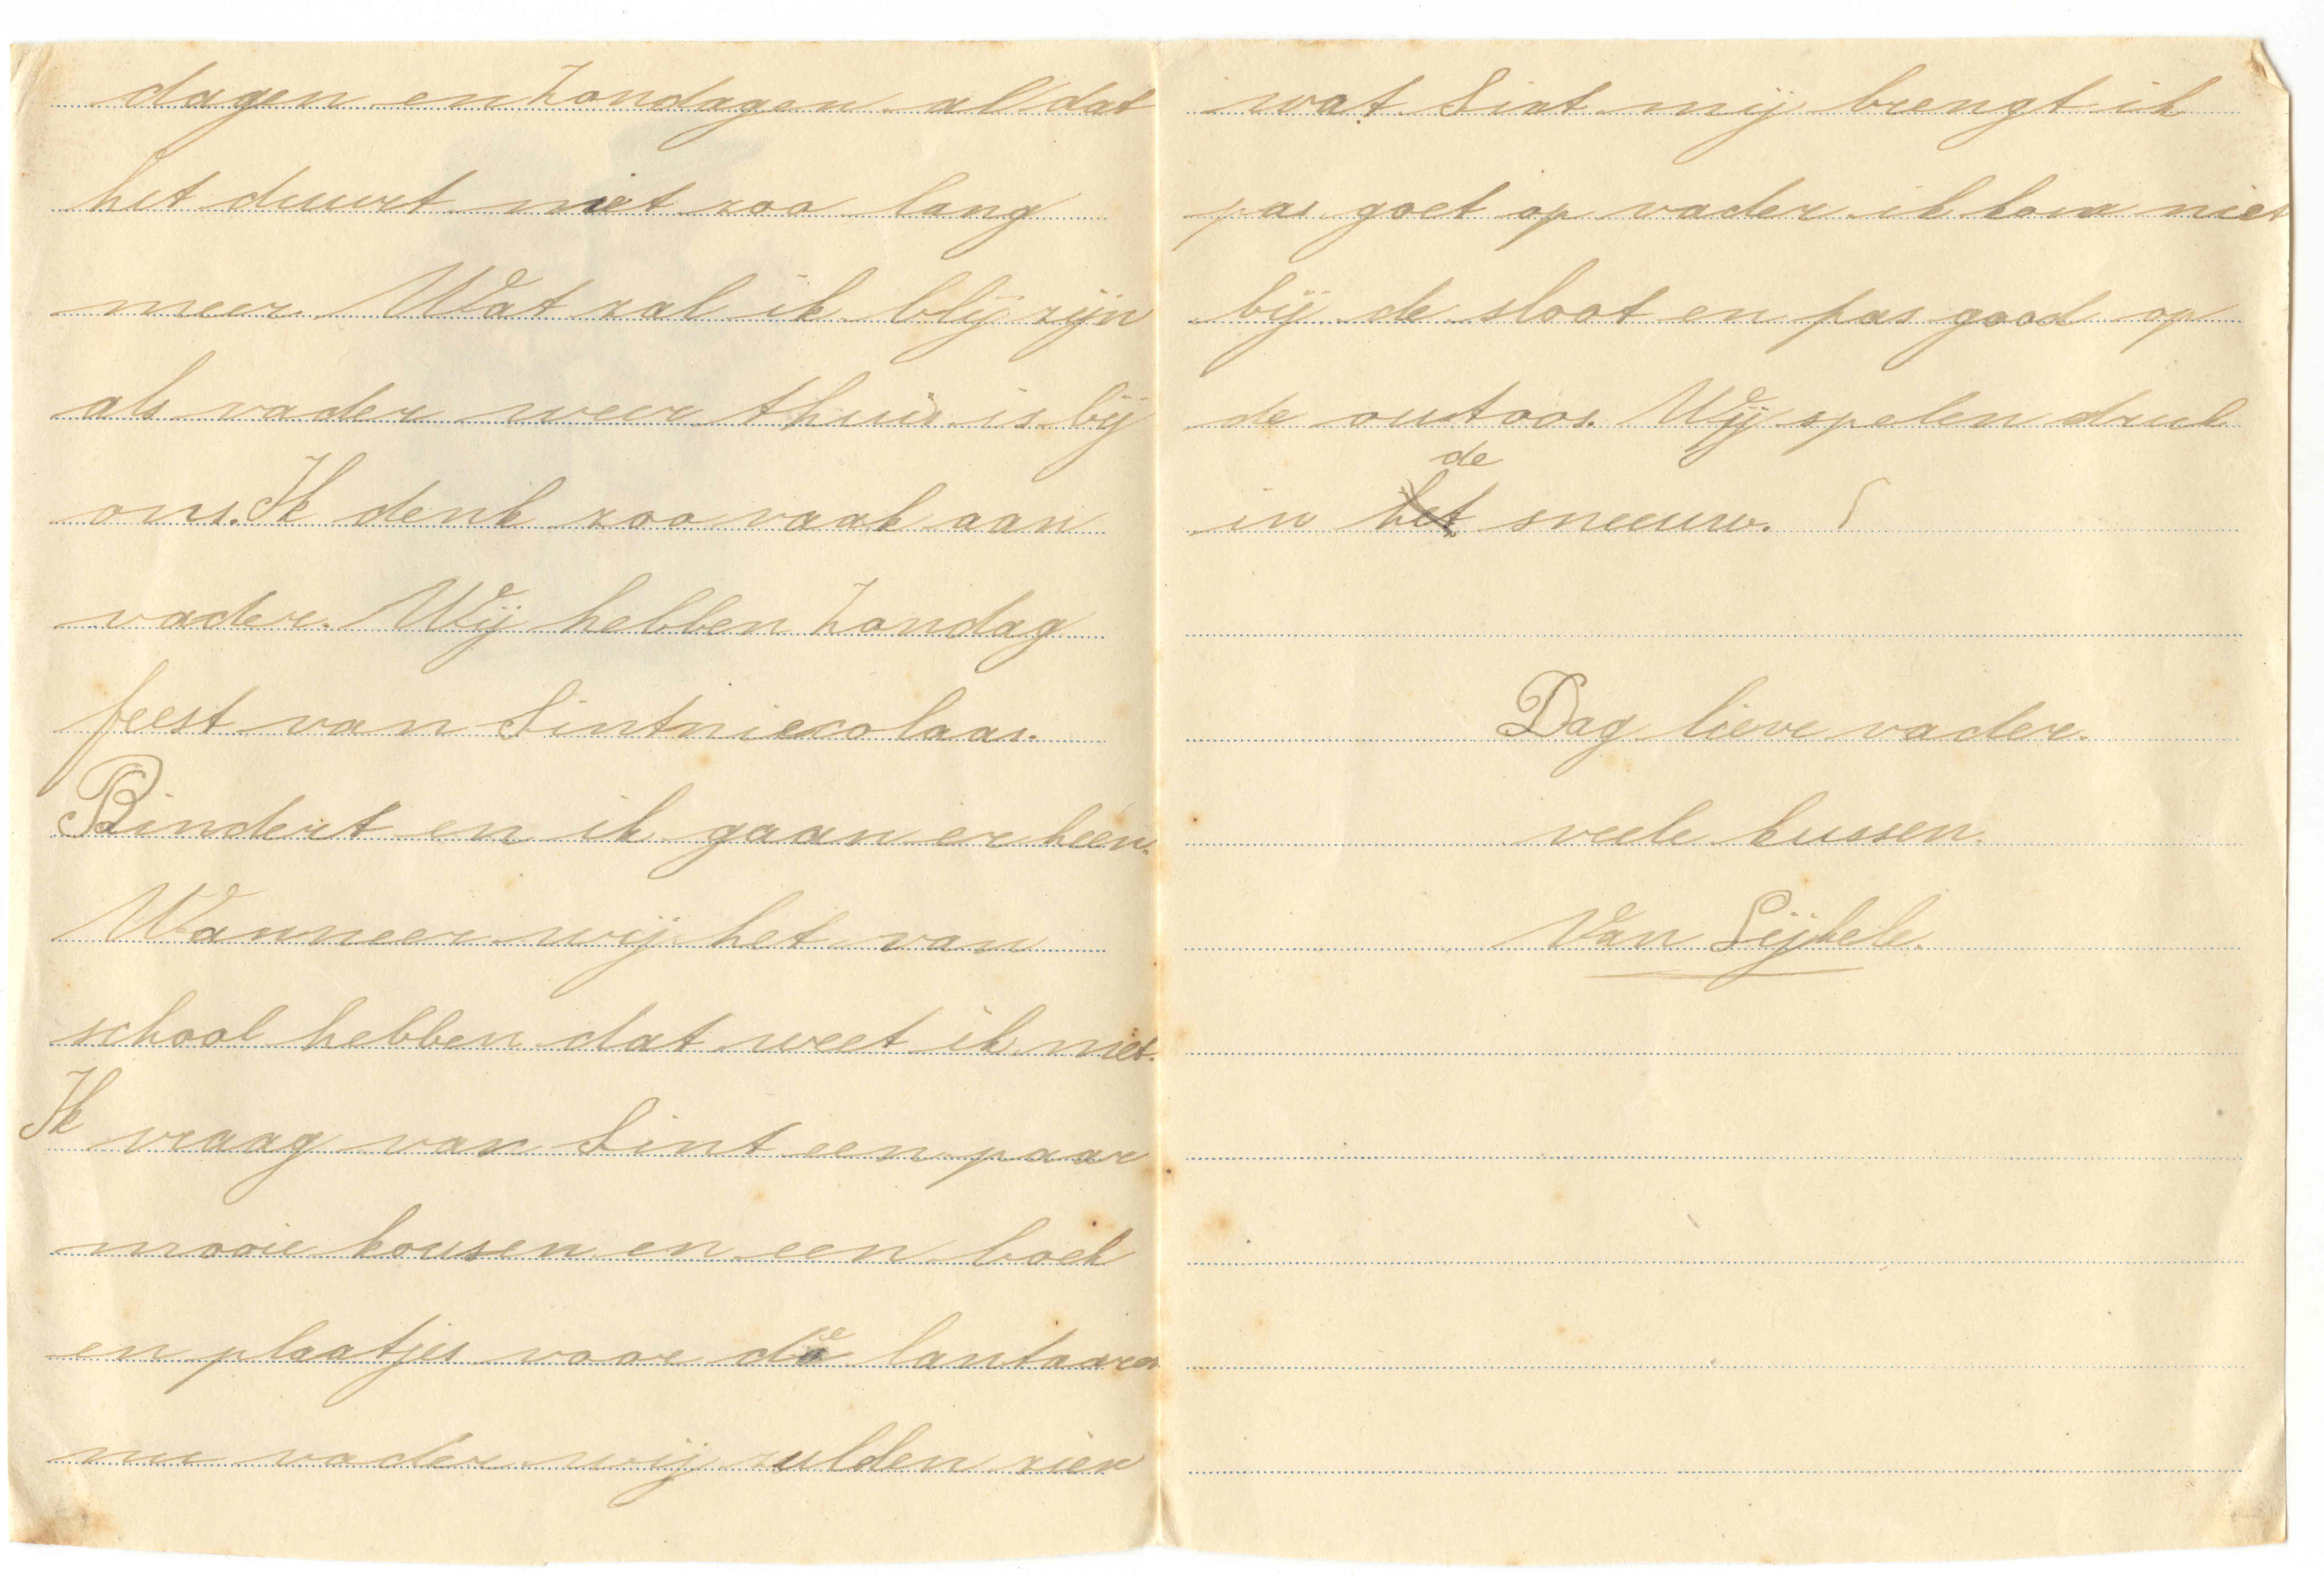 dagen en Zondagen al dat
het duurt niet zoo lang
meer. Wat zal ik blij zijn
als vader weer thuis is bij
ons. Ik denk zoo vaak aan
vader. Wij hebben Zondag
feest van Sintniecolaas.
Rindert en ik gaan er heen.
Wanneer wij het van
school hebben dat weet ik niet.
Ik vraag van Sint een paar
mooie kousen en een boek
en plaatjes voor de lantaaren
nu vader wij zulden zien
wat Sint mij brengt ik
pas goet op vader ik kom niet
bij de sloot en pas good op
de outoos. Wij spelen druk
in de sneeuw.
Dag lieve vader.
veele kussen.
Van Sijbele.